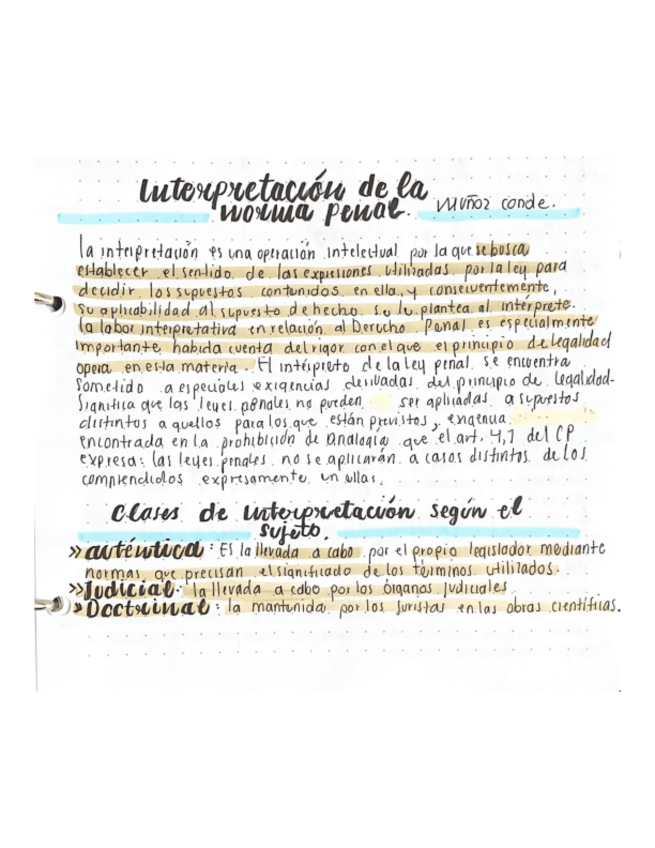 Interpretación de la
norma penal. Muñoz conde.
La interpretación es una operación intelectual por la que se busca
establecer el sentido de las expresiones utilizadas por la ley para
decidir los supuestos contenidos en ella, y consecuentemente,
su aplicabilidad al supuesto de hecho se le plantea al intérprete.
La labor interpretativa en relación al Derecho Penal es especialmente
importante, habida cuenta del rigor con el que el principio de legalidad
opera en esta materia. El intérpreto de la ley penal se encuentra
sometido a especiales exigencias derivadas del principio de legalidad.
Significa que las leyes penales no pueden ser aplicadas a supuestos
distintos a aquellos para los que están previstos, exigencia
encontrada en la prohibición de analogía que el art. 4,1 del CP
expresa: las leyes penales no se aplicarán a casos distintos de los
comprendidos expresamente en ellas.
Clases de interpretación según el
sujeto.
» auténtica: Es la llevada a cabo por el propio legislador mediante
normas, que precisan el significado de los términos utilizados.
» Judicial: la llevada a cabo por los órganos judiciales
» Doctrinal: la mantenida por los juristas en las obras científicas.